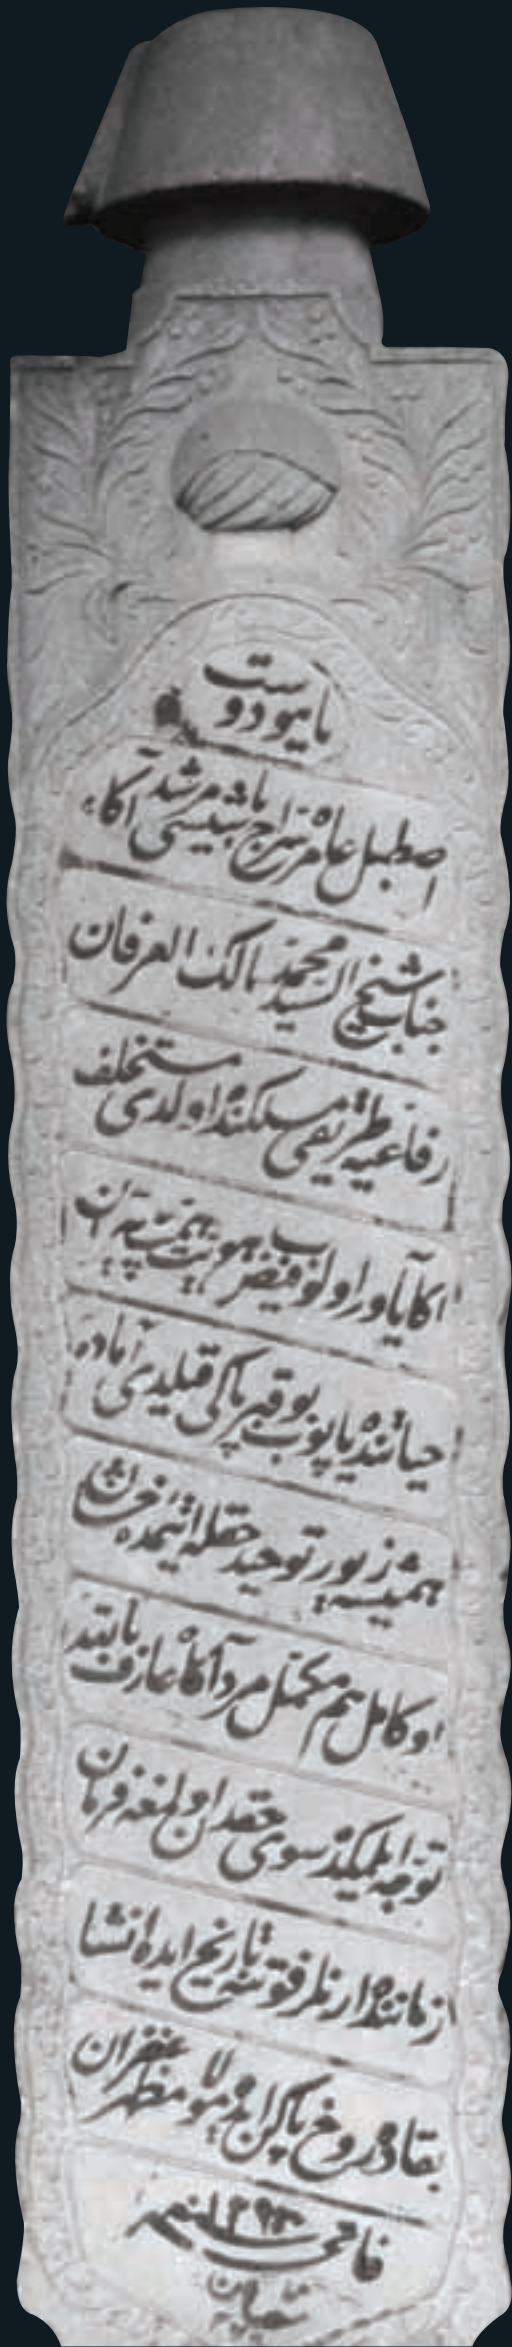 یاهو دوست
اصطبل عامره سراج باشیسی مرشد آگاه
جناب شیخ السید محمد سالك العرفان
رفاعیه طریقی مسلكنده اولدی مستخلف
اكا یاور اولوب فیض هویت همت پیران
حیاتنده یاپوب بو قبر پاكی قیلدی آماده
همیشه زیور توحید حقله ایتمده
او كامل هم مكمل مرد آگاه عارف
توجه ایلمیكده سوی حقدن اولمغه فرمان
ارنلر فوتنه تاریخ ایده انشا
بقاده روح پاكن ایده مولا مظهر غفران
فاتحه
شعبان